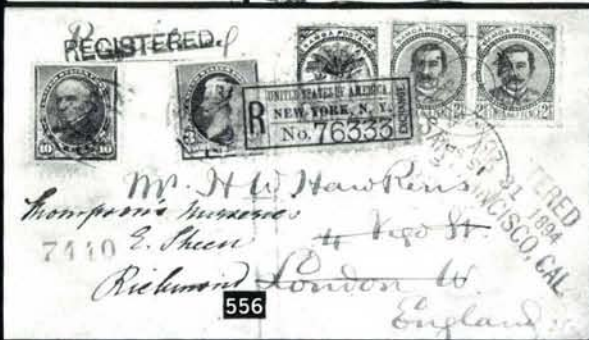 REGISTERED.
SAMOA POSTAGE
SAMOA POSTAGE
SAMOA POSTAGE
10 10
UNITED STATES OF AMERICA.
R NEW YORK, N.Y. EXCHANGE
No. 76333
REGISTERED
1894
SAN FRANCISCO, CAL
Mr. H W Hawkins
Thompson's Nurseries
4 Vigo St.
7440 E. Sheen
Richmond London W.
England
556